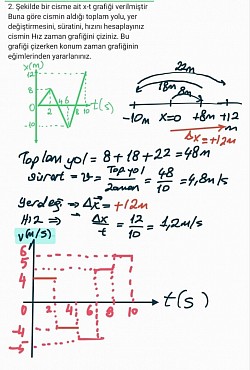 2. Şekilde bir cisme ait x-t grafiği verilmiştir
Buna göre cismin aldığı toplam yolu, yer
değiştirmesini, süratini, hızını hesaplayınız
cismin Hız zaman grafiğini çiziniz. Bu
grafiği çizerken konum zaman grafiğinin
eğimlerinden yararlanınız.
x(m)
12
8
0
-10
2 4 6 8 10
t(s)
22m
18m 8m
-10m x=0 +8m +12
Δx=+12m
Toplam yol = 8+18+22 = 48m
sürat = v = Top yol / zaman = 48/10 = 4,8m/s
Yerdeğ => Δx = +12m
Hız => Δx/t = 12/10 = 1,2m/s
v(m/s)
6
5
4
0 2 4 6 8 10 t(s)
-4
-5